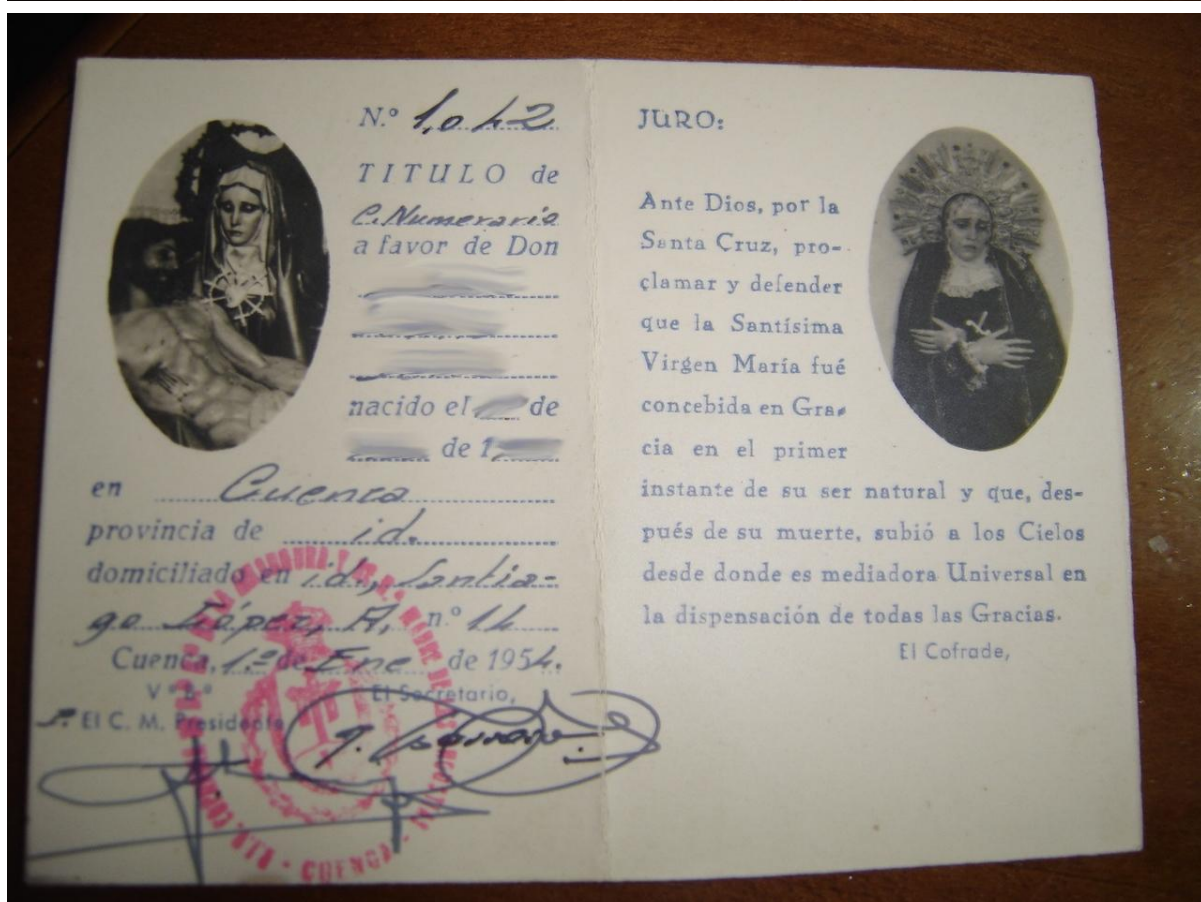 N.º 1,042
TITULO de
C. Numeraria
a favor de Don
nacido el de
de 1
en Cuenca
provincia de id.
domiciliado en id., Santia-
go López, A, n.º 14
Cuenca, 1.º de Ene de 1954.
Vº Bº El Secretario,
P. El C. M. Presidente
CUENCA
JURO:
Ante Dios, por la
Santa Cruz, pro-
clamar y defender
que la Santísima
Virgen María fué
concebida en Gra-
cia en el primer
instante de su ser natural y que, des-
pués de su muerte, subió a los Cielos
desde donde es mediadora Universal en
la dispensación de todas las Gracias.
El Cofrade,